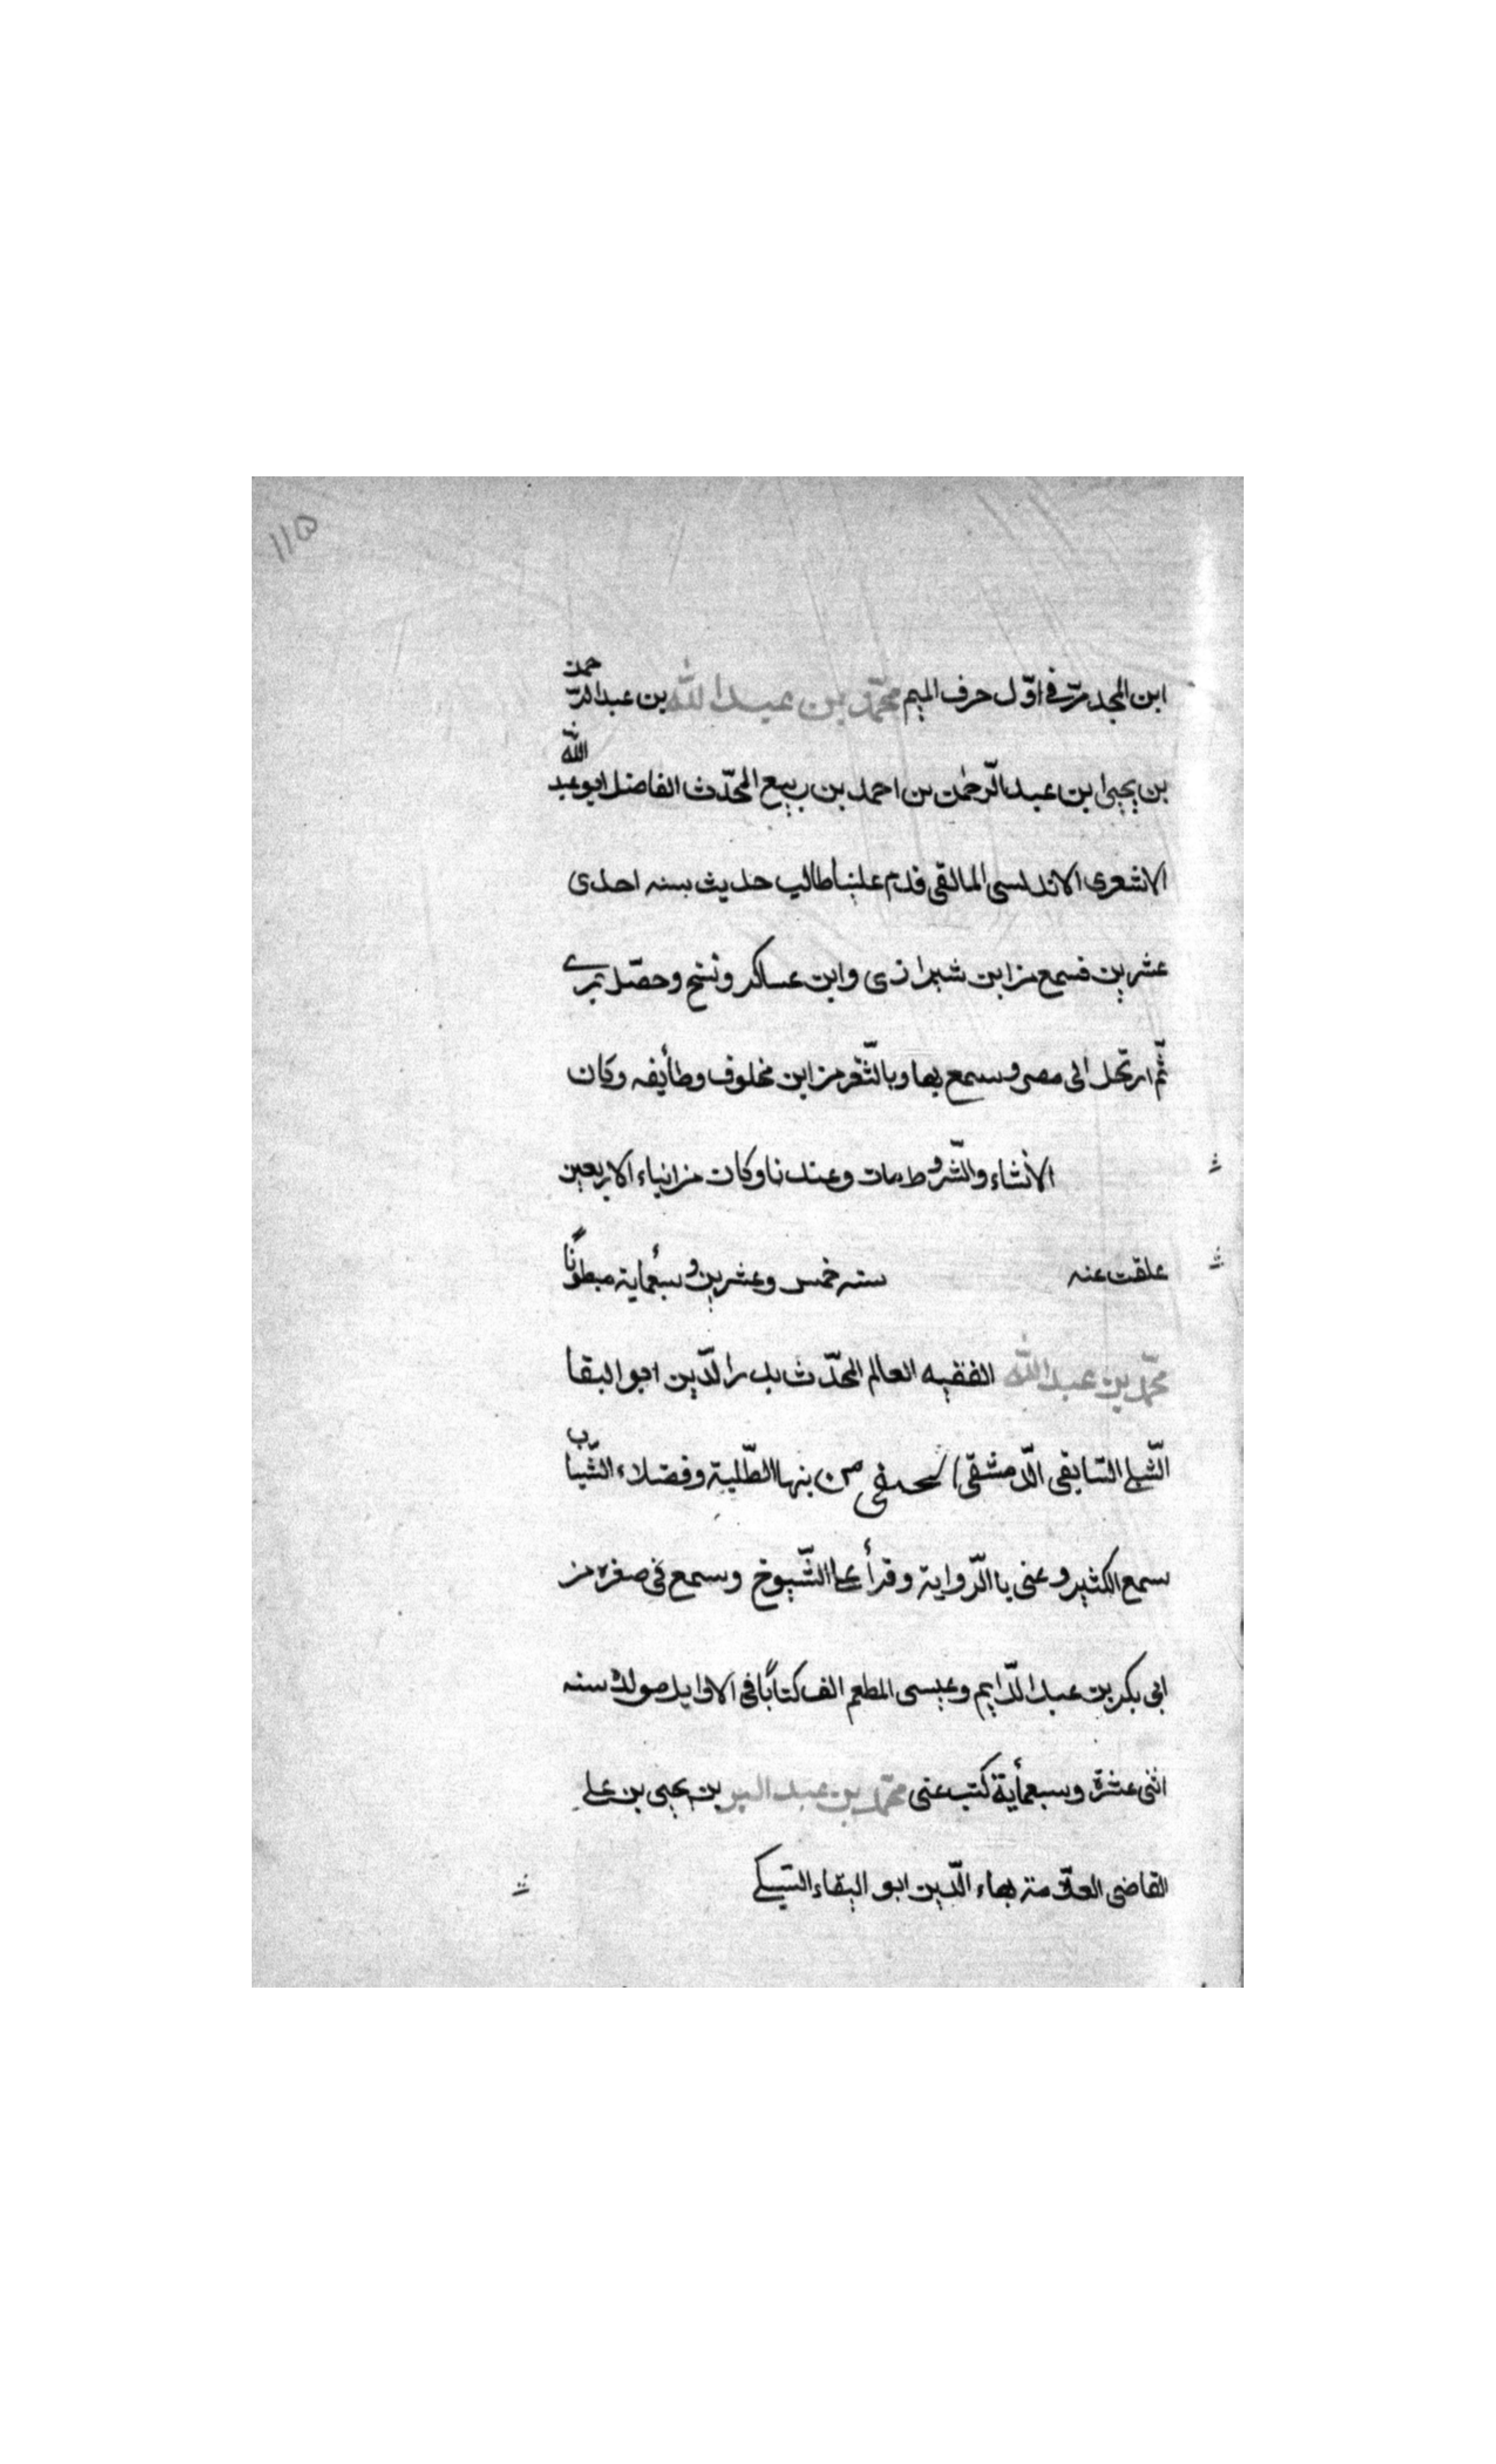 ١١٥
ابن المجد مرّ في اوّل حرف الميم محمّد بن عبد الله بن عبد الرّحمن
بن يحيى ابن عبد الرّحمن بن احمد بن ربيع المحدّث الفاضل ابو عبد الله
الاشعرى الاندلسى المالقى قدم علينا طالب حديث بسنه احدى
عشرين فسمع من ابن شيرازى وابن عساكر ونسخ وحصّل
ثمّ ارتحل الى مصر وسمع بها وبالثّغر من ابن مخلوف وطأيفه وكان
الأنشاء والشّروط مات وعندنا وكان من ابناء الاربعين
علقت عنه سنه خمس وعشرين و سبعماية مبطونًا
محمّد بن عبد الله الفقيه العالم المحدّث بدر الدّين ابو البقا
الشّبلى السّابقى الدّمشقى الحنفى من بنها الطّلبة وفضلاء الشّباب
سمع الكثير وعنى باالرّواية وقرأ على الشّيوخ وسمع فى صغره من
ابى بكر بن عبد الدّايم وعيسى المطعم الف كتابًا فى الاوايل مولده سنه
اثنى عشرة وسبعمأية كتب عنى محمّد بن عبد البر بن يحيى بن على
القاضى العلاّمة بهاء الدّين ابو البقاء السّبكى